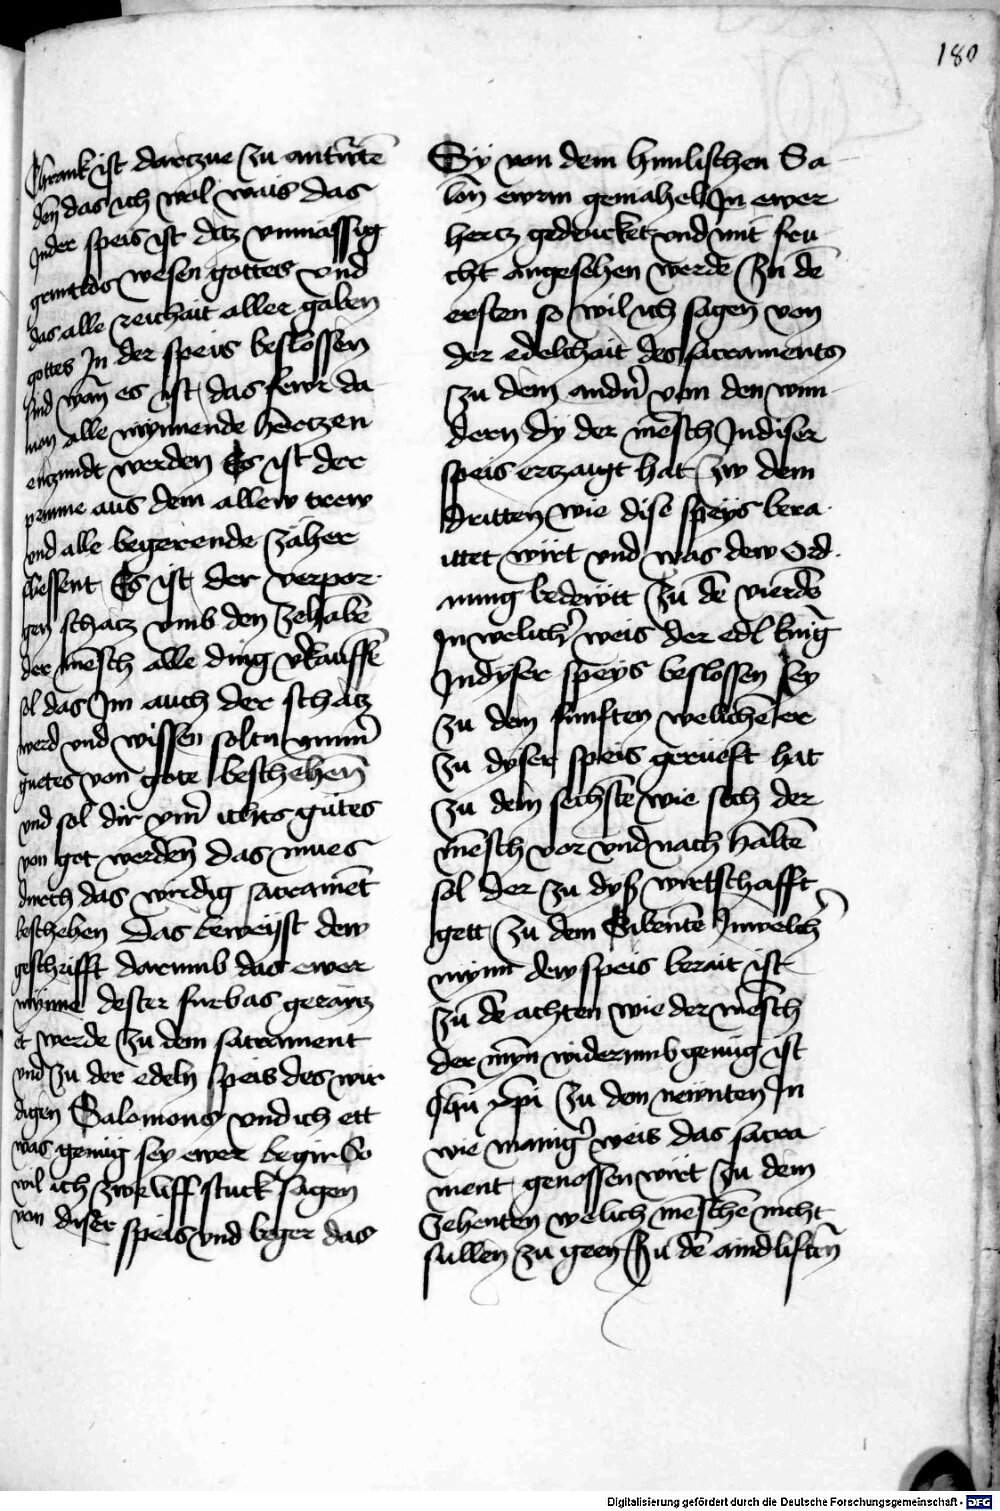 180
khrank ist darczue zu antw̄rtē
dēn das ich wol wais das
Inder speis ist daz vnmässig
wesen gottes vnd
das alle reichait aller gaben
gottes In der speis beslossen
sind wan̄ es ist das fewr da
uon alle mynnende hertzen
enczundt werden Es ist der
prunne aus dem allew trew
vnd alle begerende zäher
fliessent Es ist der verpor
gen schacz vmb den zehabē
der mēsch alle ding v̓kauffē
sol das Im auch der schatz
werd vnd wissen soltu ymm̄
guetes von gote beschehen̄
vnd sol dir ym̄ ichts gutes
von got werden̄ das mues
durch das wirdig sacramēt
beschehen Das beweÿst dew
geschrifft darumb das ewer
mynne dester furbas geraitz
et werde zu dem sacrament
vnd zu der edeln speis des wir
digen Salomons vnd ich ett
was genug sey ewer begir So
wil ich zweliff stuck sagen
von diser speis vnd beger das
Sÿ von dem himlischen Sa
lon̄ ewrm gemahel In ewer
hercz gedrucket vnd mit frü
cht angesehen werdē Zu dē
ersten so wil ich sagen von
der edelchait des sacraments
zu dem and̓n̄ von den wun
dern dÿ der mēsch Indiser
speis erczaigt hat zw dem
dritten wie dise speÿs bera
ittet wirt vnd was dew ord
nung bedewtt Zu dē vierdē
In welich̓ weis der edl kunīg
Indyser speÿs beslossen sey
zu dem funften wellichē er
zu dyser speis gerueft hat
zu dem sechstē wie sich der
mēsch vor vnd nach haltē
sol der zu dyß wirtschafft
gett Zu dem Sibentē Inwelch̓
mynn dew speis berait ist
Zu dē achten wie der mēsch
der myn̄ widerumb genug ist
Ihū xp̄i Zu den newnten In
wie manig̓ weis das sacra
ment genossen wirt Zu dem
zehenten welich mēschē nicht
sullen zu geen Zu dē aindliftēn
Digitalisierung gefördert durch die Deutsche Forschungsgemeinschaft - DFG